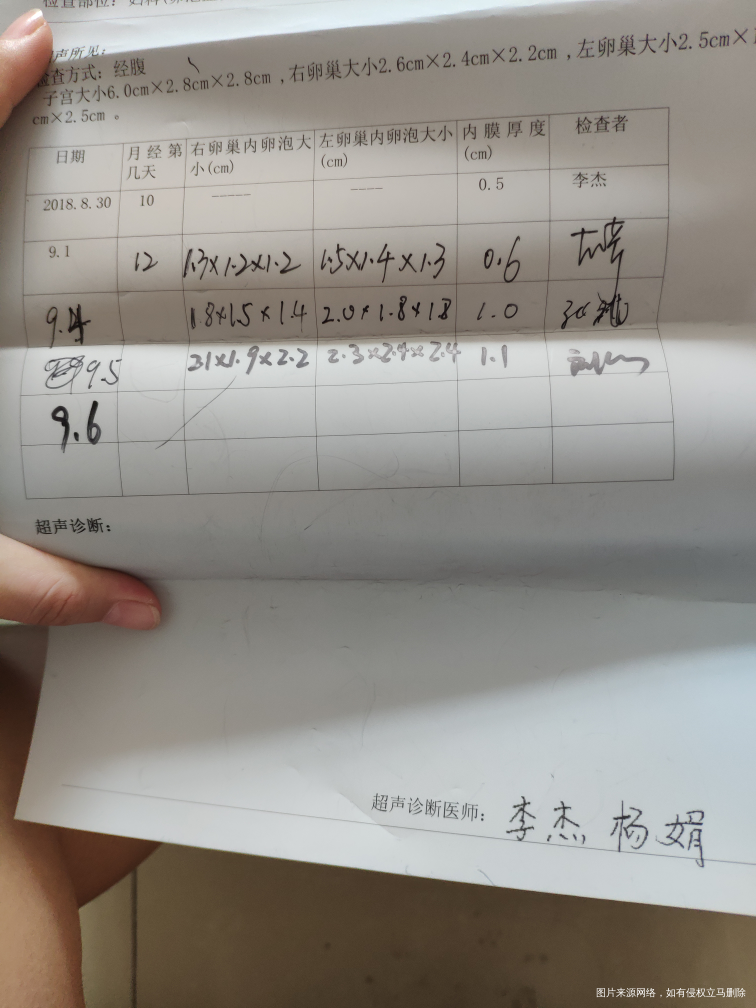 检查部位：妇科
超声所见：
检查方式：经腹
子宫大小6.0cm×2.8cm×2.8cm ,右卵巢大小2.6cm×2.4cm×2.2cm ,左卵巢大小2.5cm×
cm×2.5cm 。
日期 月经第几天 右卵巢内卵泡大小(cm) 左卵巢内卵泡大小(cm) 内膜厚度(cm) 检查者
2018.8.30 10 ----- ---- 0.5 李杰
9.1 12 1.3×1.2×1.2 1.5×1.4×1.3 0.6
9.4 1.8×1.5×1.4 2.0×1.8×1.8 1.0
9.5 2.1×1.9×2.2 2.3×2.4×2.4 1.1
9.6
超声诊断：
超声诊断医师：李杰 杨娟
图片来源网络，如有侵权立马删除